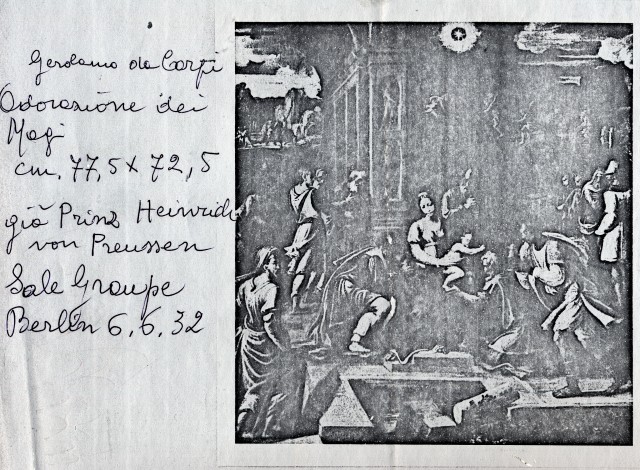 Gerolamo da Carpi
Adorazione dei
Magi
cm. 77,5 x 72,5
già Prinz Heinrich
von Preussen
Sale Graupe
Berlin 6.6.32